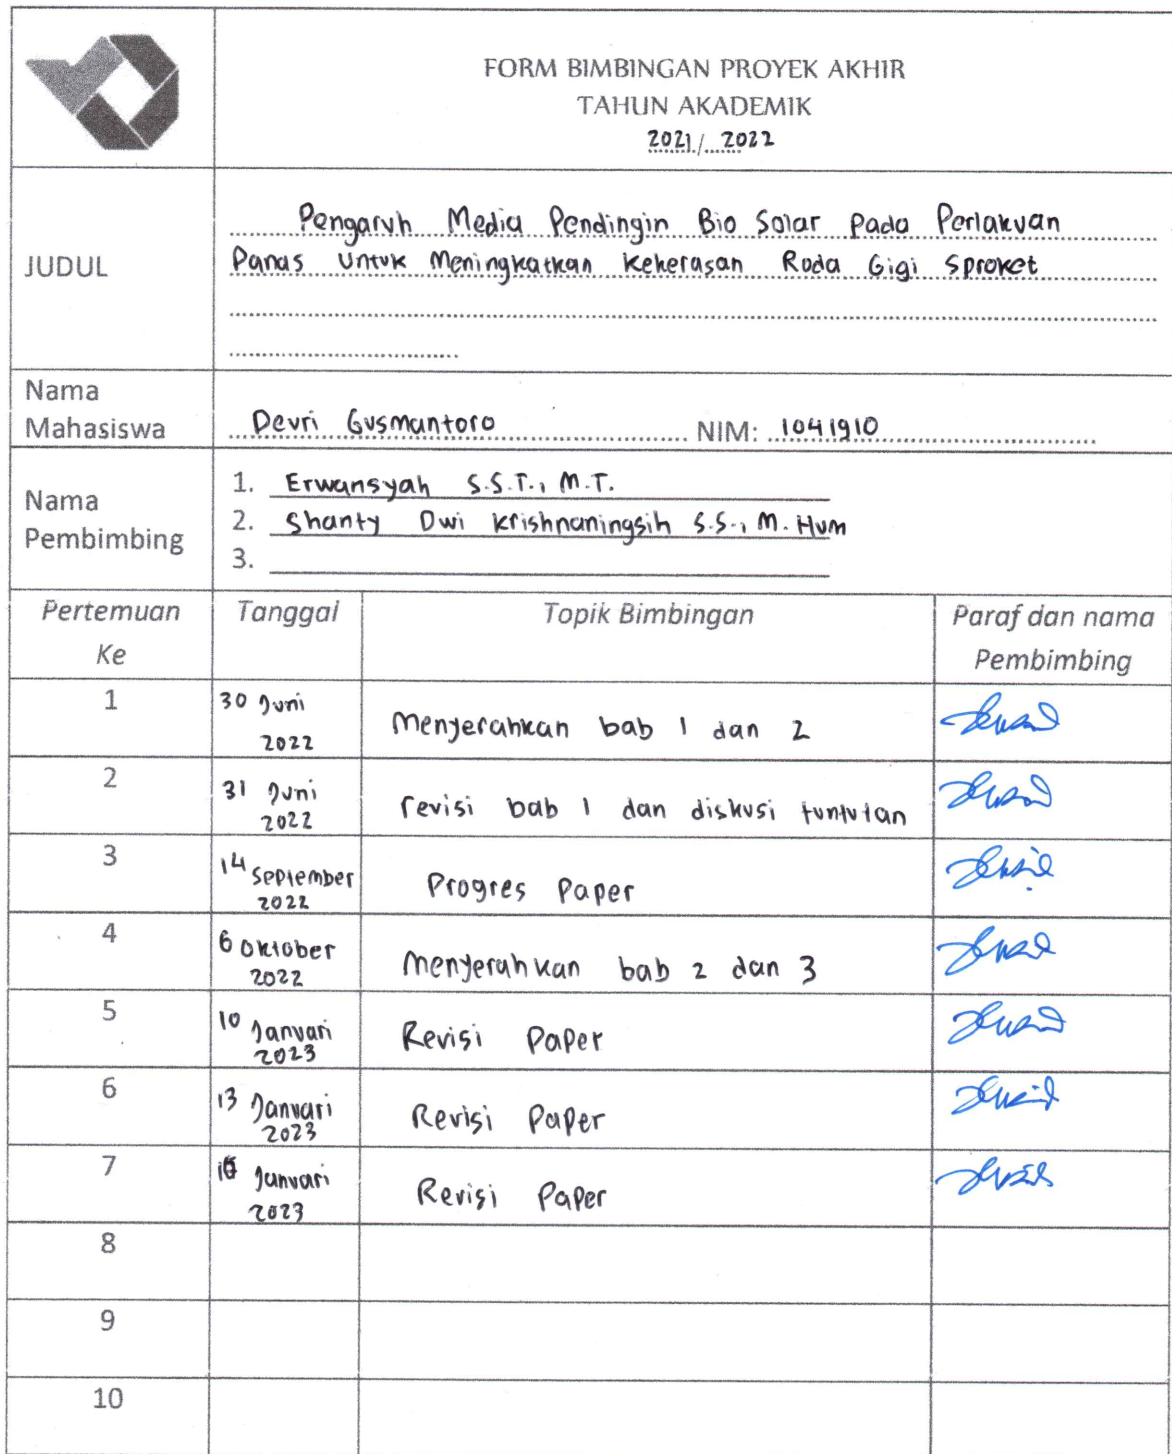 FORM BIMBINGAN PROYEK AKHIR
TAHUN AKADEMIK
2021/2022
JUDUL
Pengaruh Media Pendingin Bio Solar Pada Perlakuan
Panas Untuk Meningkatkan Kekerasan Roda Gigi Sproket
Nama
Mahasiswa
Devri Gusmantoro NIM: 1041910
Nama
Pembimbing
1. Erwansyah S.S.T., M.T.
2. Shanty Dwi Krishnaningsih S.S., M.Hum
3.
Pertemuan
Ke
Tanggal
Topik Bimbingan
Paraf dan nama
Pembimbing
1
30 Juni
2022
Menyerahkan bab 1 dan 2
2
31 Juni
2022
revisi bab 1 dan diskusi tuntutan
3
14 September
2022
Progres Paper
4
6 Oktober
2022
Menyerahkan bab 2 dan 3
5
10 Januari
2023
Revisi Paper
6
13 Januari
2023
Revisi Paper
7
Januari
2023
Revisi Paper
8
9
10